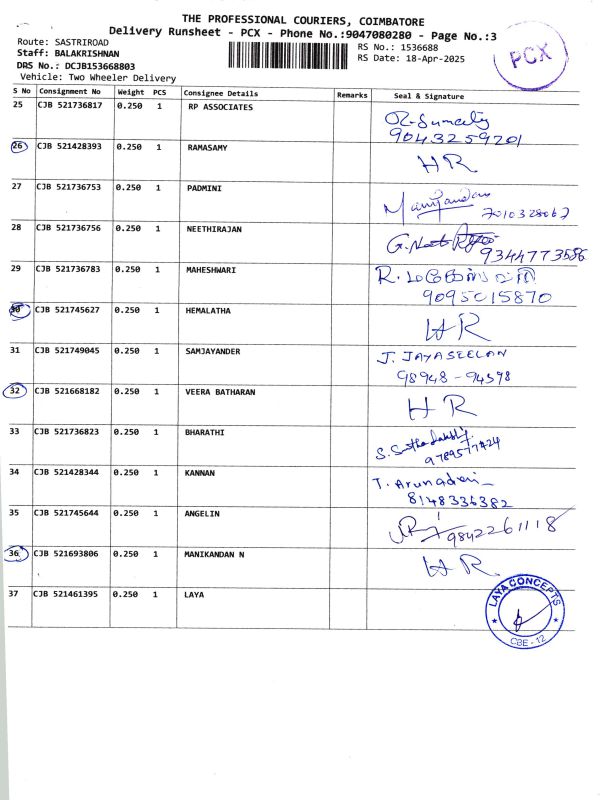 THE PROFESSIONAL COURIERS, COIMBATORE
Delivery Runsheet - PCX - Phone No.:9047080280 - Page No.:3
Route: SASTRIROAD
Staff: BALAKRISHNAN
DRS No.: DCJB153668803
Vehicle: Two Wheeler Delivery
RS No.: 1536688
RS Date: 18-Apr-2025
PCX
S No Consignment No Weight PCS Consignee Details Remarks Seal & Signature
25 CJB 521736817 0.250 1 RP ASSOCIATES
9043259201
26 CJB 521428393 0.250 1 RAMASAMY HR
27 CJB 521736753 0.250 1 PADMINI
7010328067
28 CJB 521736756 0.250 1 NEETHIRAJAN
9344773586
29 CJB 521736783 0.250 1 MAHESHWARI R.
9095015870
30 CJB 521745627 0.250 1 HEMALATHA HR
31 CJB 521749045 0.250 1 SAMJAYANDER J. JAYASEELAN
98948-94598
32 CJB 521668182 0.250 1 VEERA BATHARAN HR
33 CJB 521736823 0.250 1 BHARATHI
9789577424
34 CJB 521428344 0.250 1 KANNAN T.
8148336382
35 CJB 521745644 0.250 1 ANGELIN 9842261118
36 CJB 521693806 0.250 1 MANIKANDAN N HR
37 CJB 521461395 0.250 1 LAYA
LAYA CONCEPTS
CBE - 12